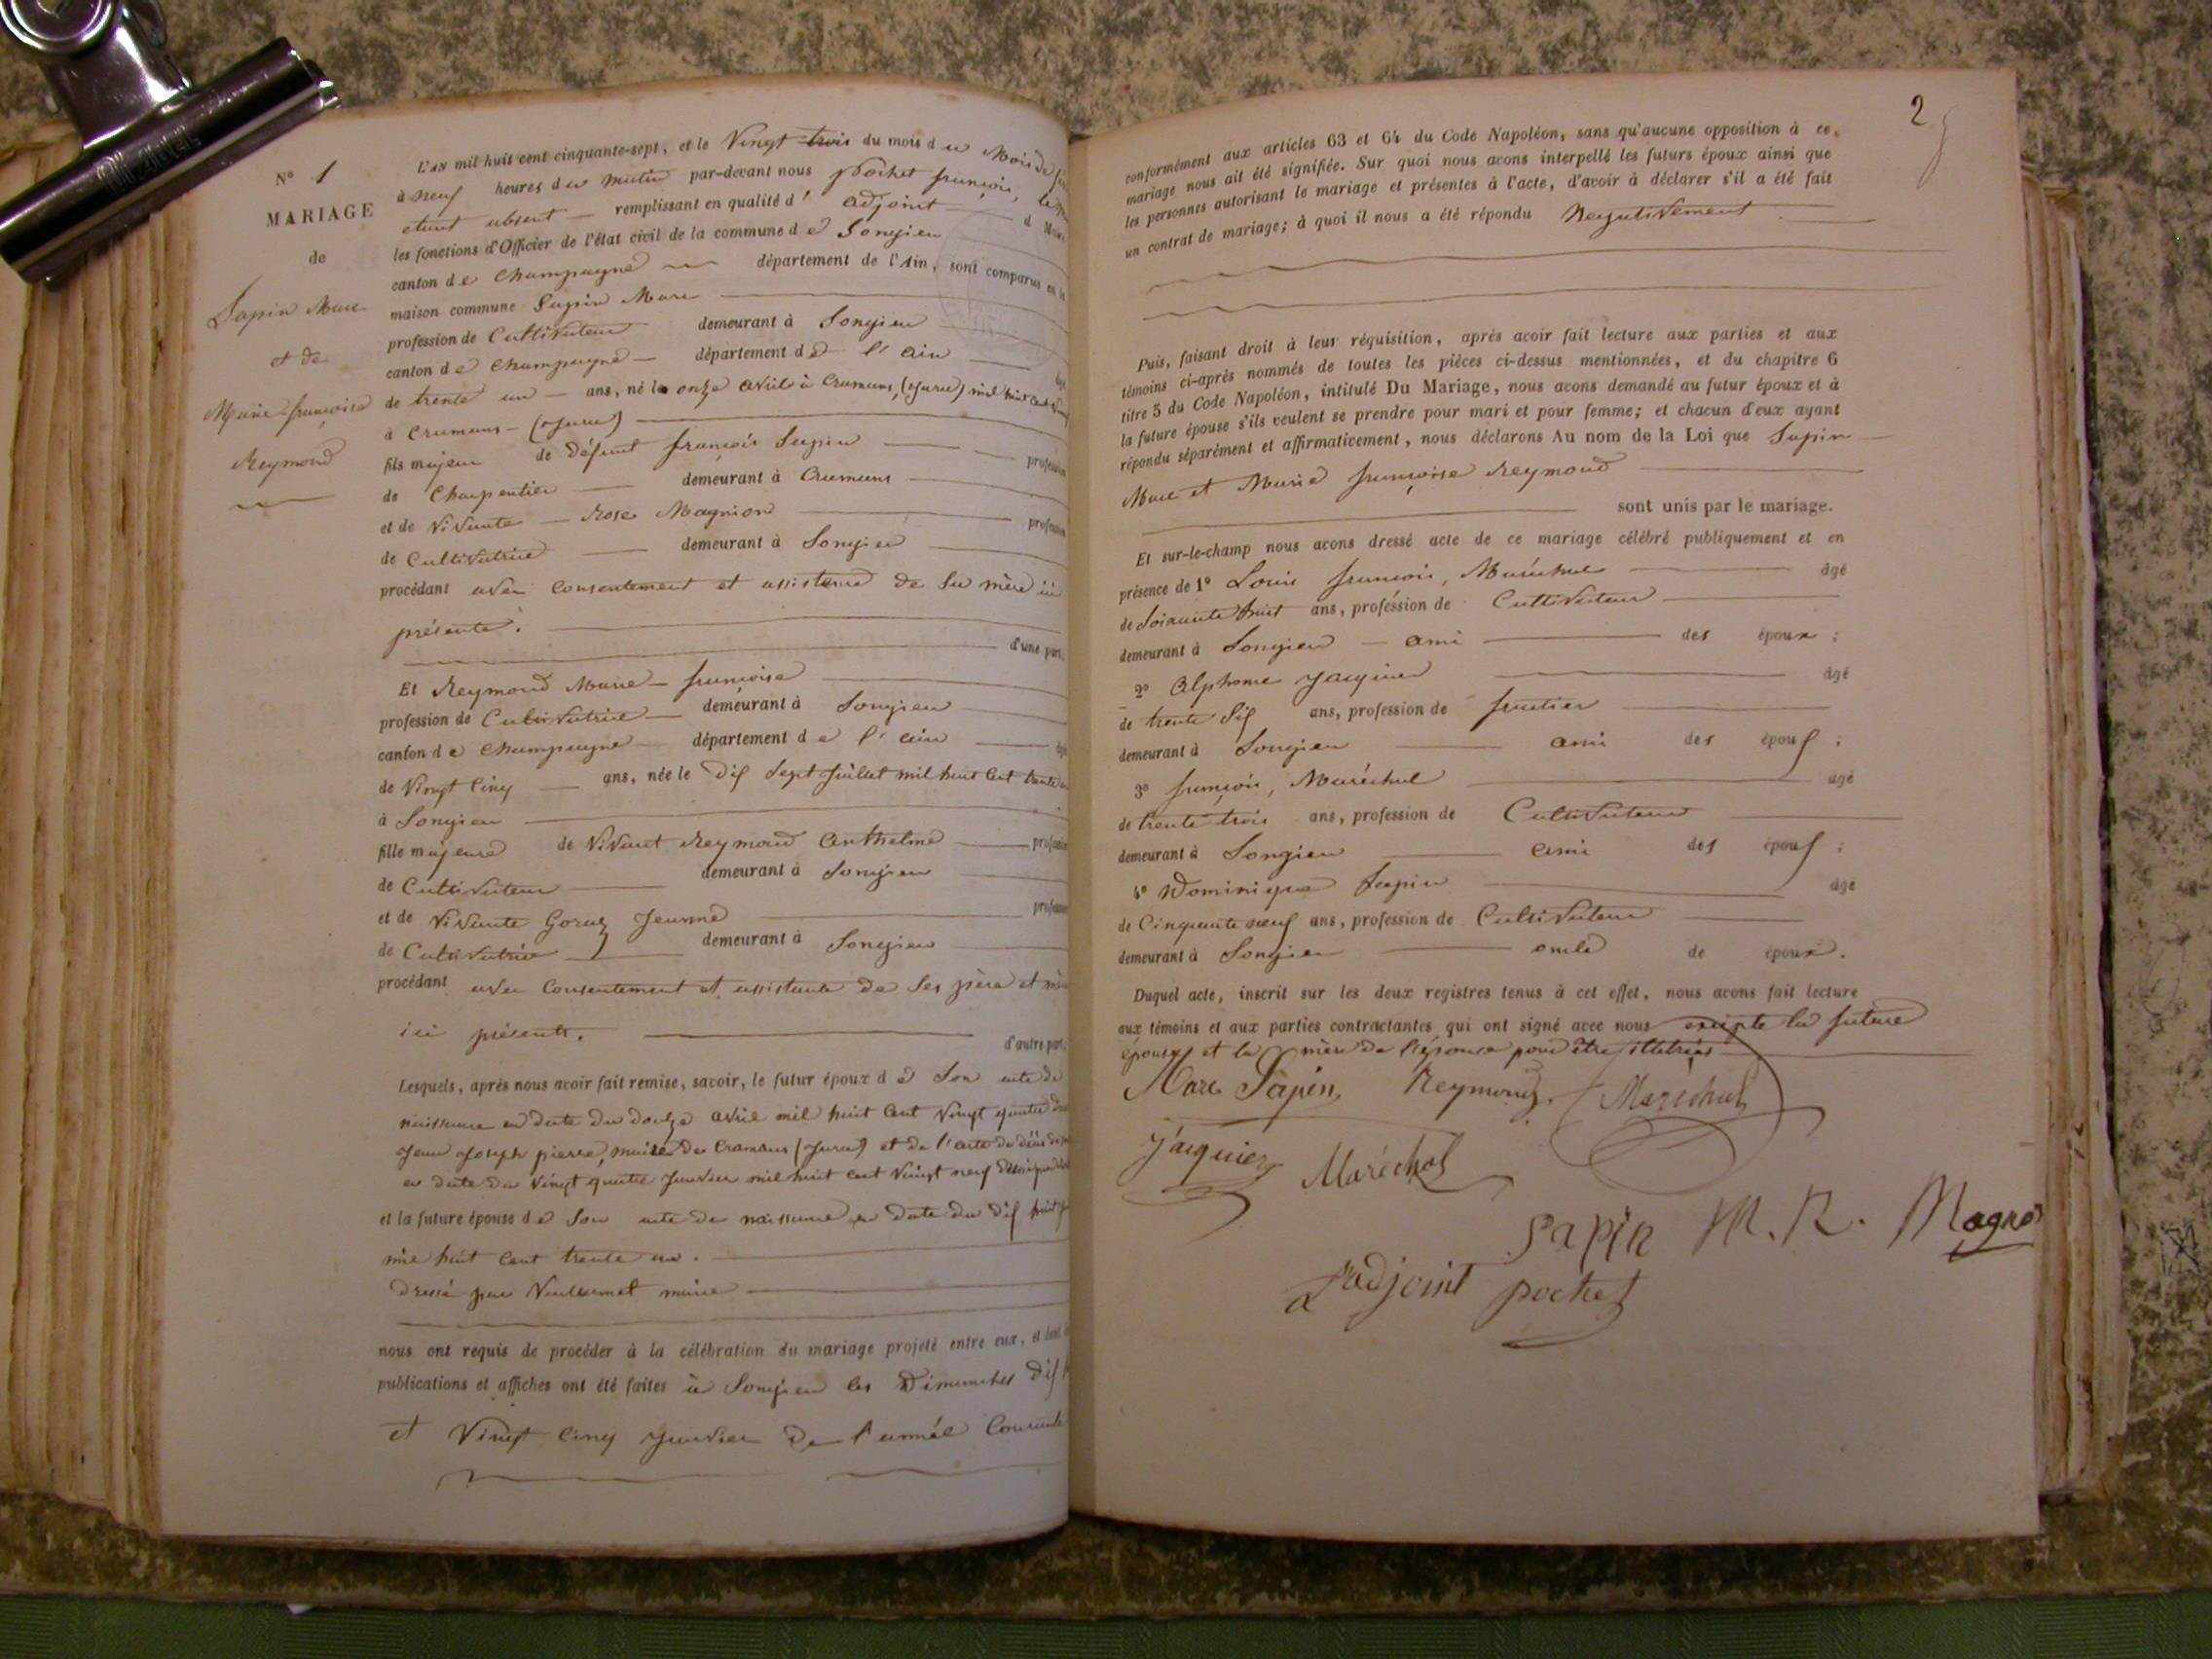 N° 1
MARIAGE
de
Sapin Marc
et de
Marie-françoise
Reymond
L'AN mil huit cent cinquante-sept, et le Vingt trois du mois d u Mois de
à neuf heures du matin par-devant nous pochet françois,
étant absent remplissant en qualité d' adjoint
les fonctions d'Officier de l'état civil de la commune d e Songieu
canton d e Champagne département de l'Ain, sont comparus en la
maison commune Sapin Marc
profession de Cultivateur demeurant à Songieu
canton d e Champagne département d e l'ain
de trente un ans, né le onze avril à Cramans, (Jura) mil huit cent
à Cramans (Jura)
fils majeur de défunt françois Sapin profession
de Charpentier demeurant à Cramans
et de Vivante Rose Magnion profession
de Cultivatrice demeurant à Songieu
procédant avec consentement et assistance de Sa mère ici
présente.
d'une part;
Et Reymond Marie-françoise
profession de Cultivatrice demeurant à Songieu
canton d e Champagne département d e l'ain
de Vingt Cinq ans, née le dix Sept Juillet mil huit cent trente un
à Songieu
fille majeure de Vivant Reymond Anthelme profession
de Cultivateur demeurant à Songieu
et de Vivante Goraz Jeanne profession
de Cultivatrice demeurant à Songieu
procédant avec Consentement et assistance de Ses père et mère
ici présents.
d'autre part;
Lesquels, après nous avoir fait remise, savoir, le futur époux d e Son acte de
naissance en date du douze avril mil huit cent Vingt quatre
Jean Joseph pierre, maire de Cramans (Jura) et de l'acte de décès de
en date du Vingt quatre Janvier mil huit cent Vingt neuf
et la future épouse d e Son acte de naissance en date du dix huit
mil huit cent trente un.
dressé par Vuillermet maire
nous ont requis de procéder à la célébration du mariage projeté entre eux, et dont les
publications et affiches ont été faites à Songieu les Dimanches dix
et Vingt Cinq Janvier de l'année Courante
2
conformément aux articles 63 et 64 du Code Napoléon, sans qu'aucune opposition à ce
mariage nous ait été signifiée. Sur quoi nous avons interpellé les futurs époux ainsi que
les personnes autorisant le mariage et présentes à l'acte, d'avoir à déclarer s'il a été fait
un contrat de mariage; à quoi il nous a été répondu Negativement
Puis, faisant droit à leur réquisition, après avoir fait lecture aux parties et aux
témoins ci-après nommés de toutes les pièces ci-dessus mentionnées, et du chapitre 6
titre 5 du Code Napoléon, intitulé Du Mariage, nous avons demandé au futur époux et à
la future épouse s'ils veulent se prendre pour mari et pour femme; et chacun d'eux ayant
répondu séparément et affirmativement, nous déclarons Au nom de la Loi que Sapin
Marc et Marie françoise Reymond
sont unis par le mariage.
Et sur-le-champ nous avons dressé acte de ce mariage célébré publiquement et en
présence de 1° Louis françois, Maréchal âgé
de Soixante huit ans, profession de Cultivateur
demeurant à Songieu ami des époux;
2° Alphonse Jacquier âgé
de trente Six ans, profession de fruitier
demeurant à Songieu ami des époux;
3° françois, Maréchal âgé
de trente trois ans, profession de Cultivateur
demeurant à Songieu ami des époux;
4° Dominique Sapin âgé
de Cinquante neuf ans, profession de Cultivateur
demeurant à Songieu oncle de époux.
Duquel acte, inscrit sur les deux registres tenus à cet effet, nous avons fait lecture
aux témoins et aux parties contractantes qui ont signé avec nous excepte la future
épouse et la mère de l'épouse pour être illetrées
Marc Sapin Reymond Maréchal
Jacquier Maréchal
Sapin M. R. Magnion
L'adjoint pochet